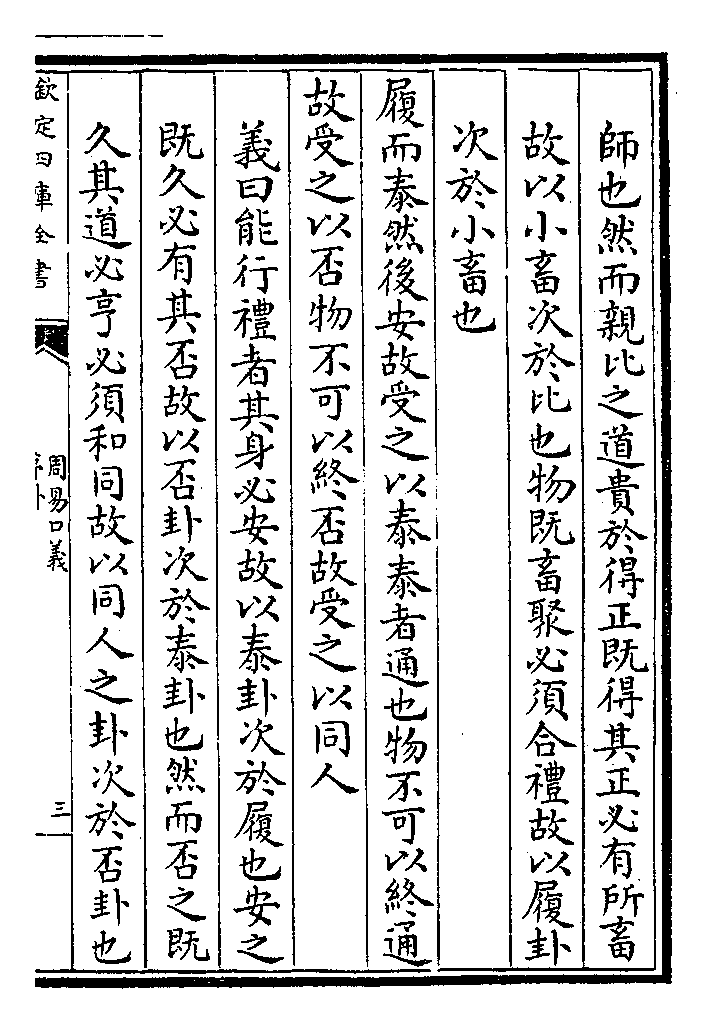 師也然而親比之道貴於得正既得其正必有所畜
故以小畜次於比也物既畜聚必須合禮故以履卦
次於小畜也
履而泰然後安故受之以泰泰者通也物不可以終通
故受之以否物不可以終否故受之以同人
義曰能行禮者其身必安故以泰卦次於履也安之
既久必有其否故以否卦次於泰卦也然而否之既
久其道必亨必須和同故以同人之卦次於否卦也
欽定四庫全書
周易口義
序卦
三